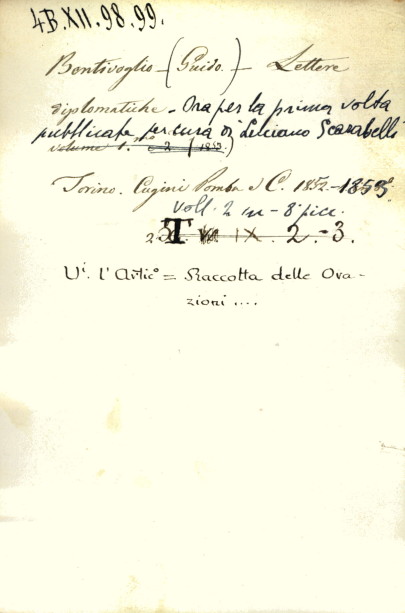 4B.XII.98.99.
Bentivoglio - (Guido.) - Lettere
diplomatiche - Ora per la prima volta
pubblicate per cura di Luciano Scarabelli
volume 1.mo e 2 (1853.)
Torino. Cugini Pomba e C. 1852 - 1853.
voll. 2 in - 8° picc.
T IX. 2.-3.
Vi. l'Artico = Raccotta delle Ora-
zioni ....